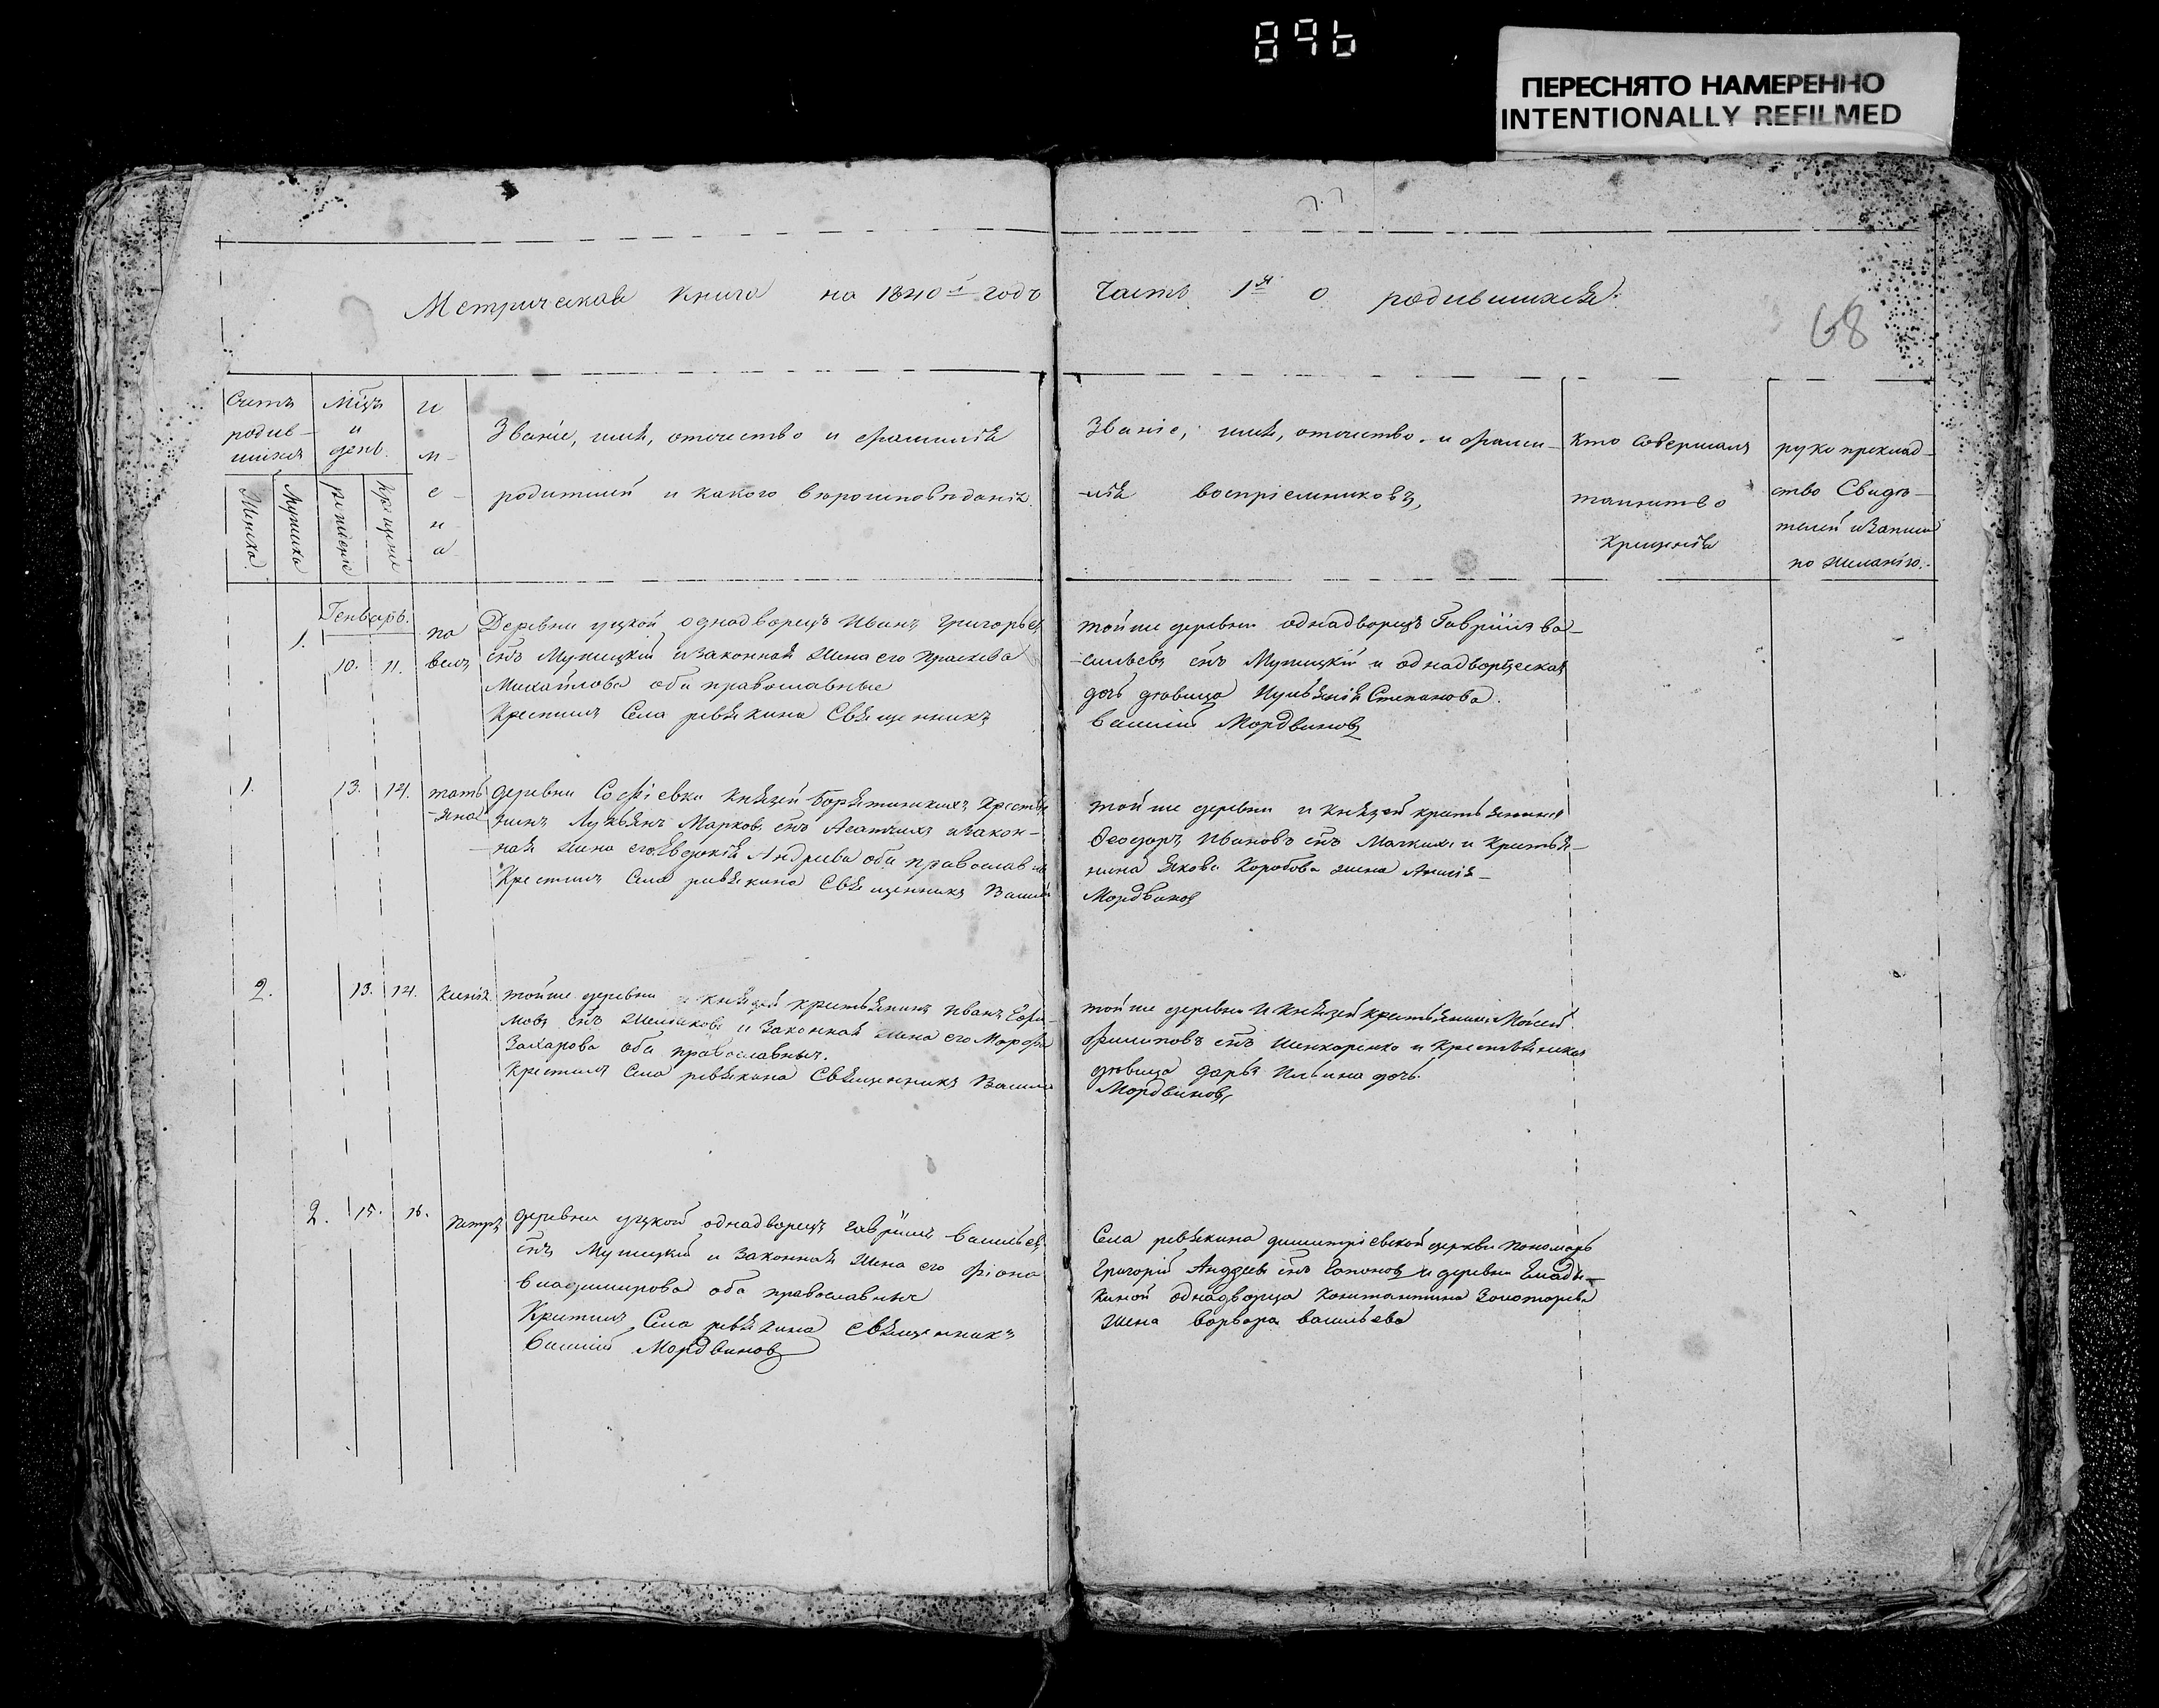 896
ПЕРЕСНЯТО НАМЕРЕННО
INTENTIONALLY REFILMED
Метрическая Книга на 1840й годъ
Часть 1я о родившихся.
68
Счетъ родив-шихся
Мѣцъ и день.
И м е н а
Званіе, имя, отечество и фамилія
родителей и какого вѣроисповѣданія.
Званіе, имя, отечество и фами-
лія воспріемниковъ,
Кто совершалъ
таинство
Крещенія
рукоприклад-
ство Свидѣ-
телей
по желанію.
Женска
Мужика
рожденіе
крещеніе
Генварь.
1.
10.
11.
па
велъ
Деревни однадворецъ Иванъ Григорьев
снъ Мужицкій и законная жена его Праскева
Михайлова оба православные
Крестилъ Села ревякина Священникъ
тойже деревни однадворецъ Гавріилъ Ва-
сильевъ снъ Мужицкій и однадворческая
дочь дѣвица Степанова.
Василій Мордвиновъ
1.
13.
14.
тать
-яна
деревни Софіевки Князей Барятинскихъ Крестья
нинъ Лукьянъ Марковъ снъ и закон-
ная жена его Евдокія Андреева оба православн
Крестилъ Села ревякина Священникъ Василій
тойже деревни и Князей крестьянинъ
Феодоръ Ивановъ снъ и Крестья-
нина Якова Коробова жена
Мордвиновъ
2.
13.
14.
Ксенія
тойже деревни и князей крестьянинъ Иванъ Ефи-
мовъ снъ и законная жена его Марфа
Захарова оба православныя.
Крестилъ Села ревякина Священникъ Василій
тойже деревни и Князей крестьянинъ Моисей
Филиповъ снъ Шинкаренко и Крестьянская
дѣвица дарья Ильина дочь.
Мордвиновъ
2.
15.
16.
Петръ
деревни однадворецъ Гавріилъ Васильев
снъ Мужицкій и законная жена его Фіона
Владимирова оба православныя
Крестилъ Села ревякина Священникъ
Василій Мордвиновъ
Села ревякина димитріевской церкви пономарь
Григорій Андреевъ снъ и деревни
однадворца Константина Золотарева
жена варвара васильева